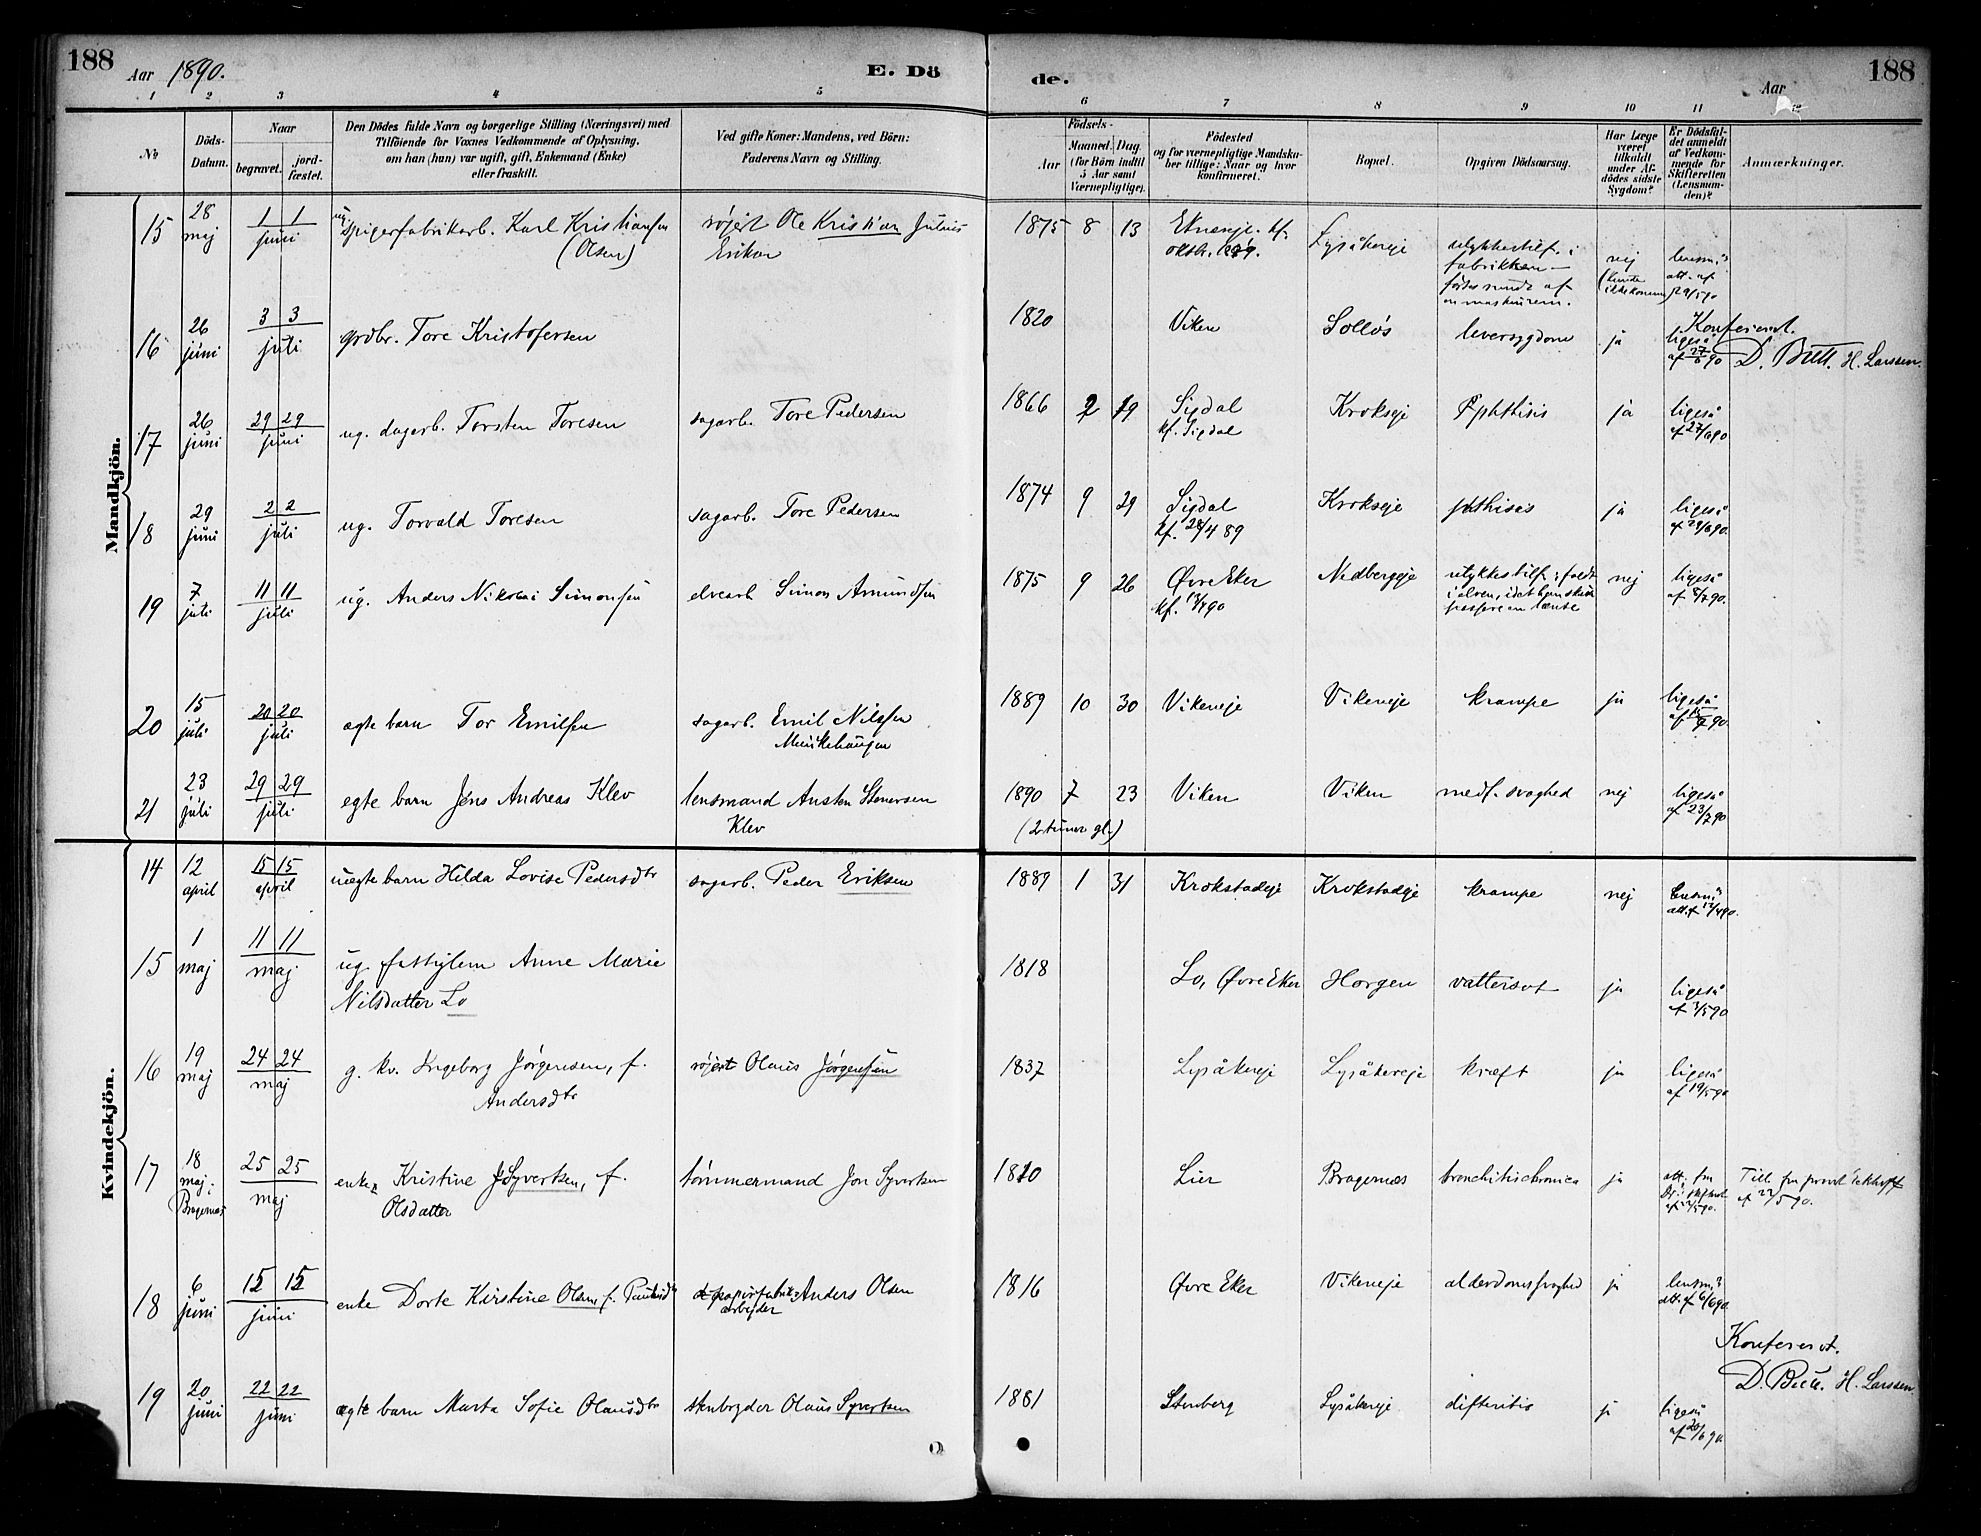 188
Aar 1890.
E. Dö
de.
Aar
188
1 2 3 4 5 6 7 8 9 10 11 12
No
Döds-
Datum.
Naar
begravet.
jord-
fæstet.
Den Dödes fulde Navn og borgerlige Stilling (Næringsvei) med
Tilföiende for Voxnes Vedkommende af Oplysning,
om han (hun) var ugift, gift, Enkemand (Enke)
eller fraskilt.
Ved gifte Koner: Mandens, ved Börn:
Faderens Navn og Stilling.
Födsels-
Aar
Maaned.
Dag
(for Börn indtil
5 Aar samt
Værnepligtige).
Födested
og for værnepligtige Mandska-
ber tillige: Naar og hvor
konfirmeret.
Bopæl.
Opgiven Dödsaarsag.
Har Læge
været
tilkaldt
under Af-
dödes sidste
Sygdom?
Er Dödsfal-
det anmeldt
af Vedkom-
mende for
Skifteretten
(Lensman-
den)?
Anmærkninger.
Mandkjön.
15 28 maj 1 1 juni ug. spigerfabrikarb. Karl Kristiansen (Olsen) røjert Ole Kristian Julius Erikson 1875 8 13 kf. Lysåkereje ulykkestilf. i fabrikken — af en maskinrem. nej (kunde ikke komme) lensm.s att. af 29/5 90
16 26 juni 3 3 juli grdbr. Tore Kristofersen 1820 Viken Solløs leversygdom ja ligeså af 27/6 90
Konfereret.
H. Larssen.
17 26 juni 29 29 juni ug. dagarb. Torsten Toresen sagarb. Tore Pedersen 1866 2 19 Sigdal kf. Sigdal Krokseje phthisis ja ligeså af 27/6 90
18 29 juni 2 2 juli ug. Torvald Toresen sagarb. Tore Pedersen 1874 9 29 Sigdal kf. 28/4 89 Krokseje phthisis ja ligeså af 90.
19 7 juli 11 11 juli ug. Anders Nikolai Simonsen elvearb Simon Amundsen 1875 9 26 Øvre Eker kf. 90 Nedbergeje ulykkestilf.; faldt i elven, idet han skulde passere en lænse nej ligeså af 8/7 90.
20 15 juli 20 20 juli egte barn Tor Emilsen sagarb. Emil Nilssen Munkehaugen 1889 10 30 Vikeneje Vikeneje krampe ja ligeså af 90
21 23 juli 29 29 juli egte barn Jens Andreas Klev lensmand Austen Stenersen Klev 1890 7 23 (2 timer gl.) Viken Viken medf. svaghed nej ligeså af 23/7 90
Kvindekjön.
14 12 april 15 15 april uegte barn Hilda Lovise Pedersdtr sagarb. Peder Eriksen 1889 1 31 Krokstadeje Krokstadeje krampe nej lensm.s att. af 12/4 90.
15 1 maj 11 11 maj ug. fattiglem Anne Marie Nilsdatter Lo 1818 Lo, Øvre Eker Horgen vattersot ja ligeså af 3/5 90
16 19 maj 24 24 maj g. kv. Ingeborg Jørgensen, f. Andersdtr røjert Olaus Jørgensen 1837 Lysåkereje Lysåkereje kræft ja ligeså af 19/5 90
17 18 maj. Bragernæs 25 25 maj enke Kristine Syvertsen, f. Olsdatter tømmermand Jon Syvertsen 1810 Lier Bragernæs bronchitis chronica ja att. fra af 22/5 90. Till. fra provst Eckhoff af 22/5 90.
18 6 juni 15 15 juni enke Dorte Kirstine Olsen, f. papirfabrik- arbejder Anders Olsen 1816 Øvre Eker Vikeneje alderdomssvaghed ja lensm.s att. af 6/6 90
Konfereret.
H. Larssen
19 20 juni 22 22 juni egte barn Marta Sofie Olausdtr stenbryder Olaus Syvertsen 1881 Stenberg Lysåkereje difteritis ja ligeså af 20/6 90.